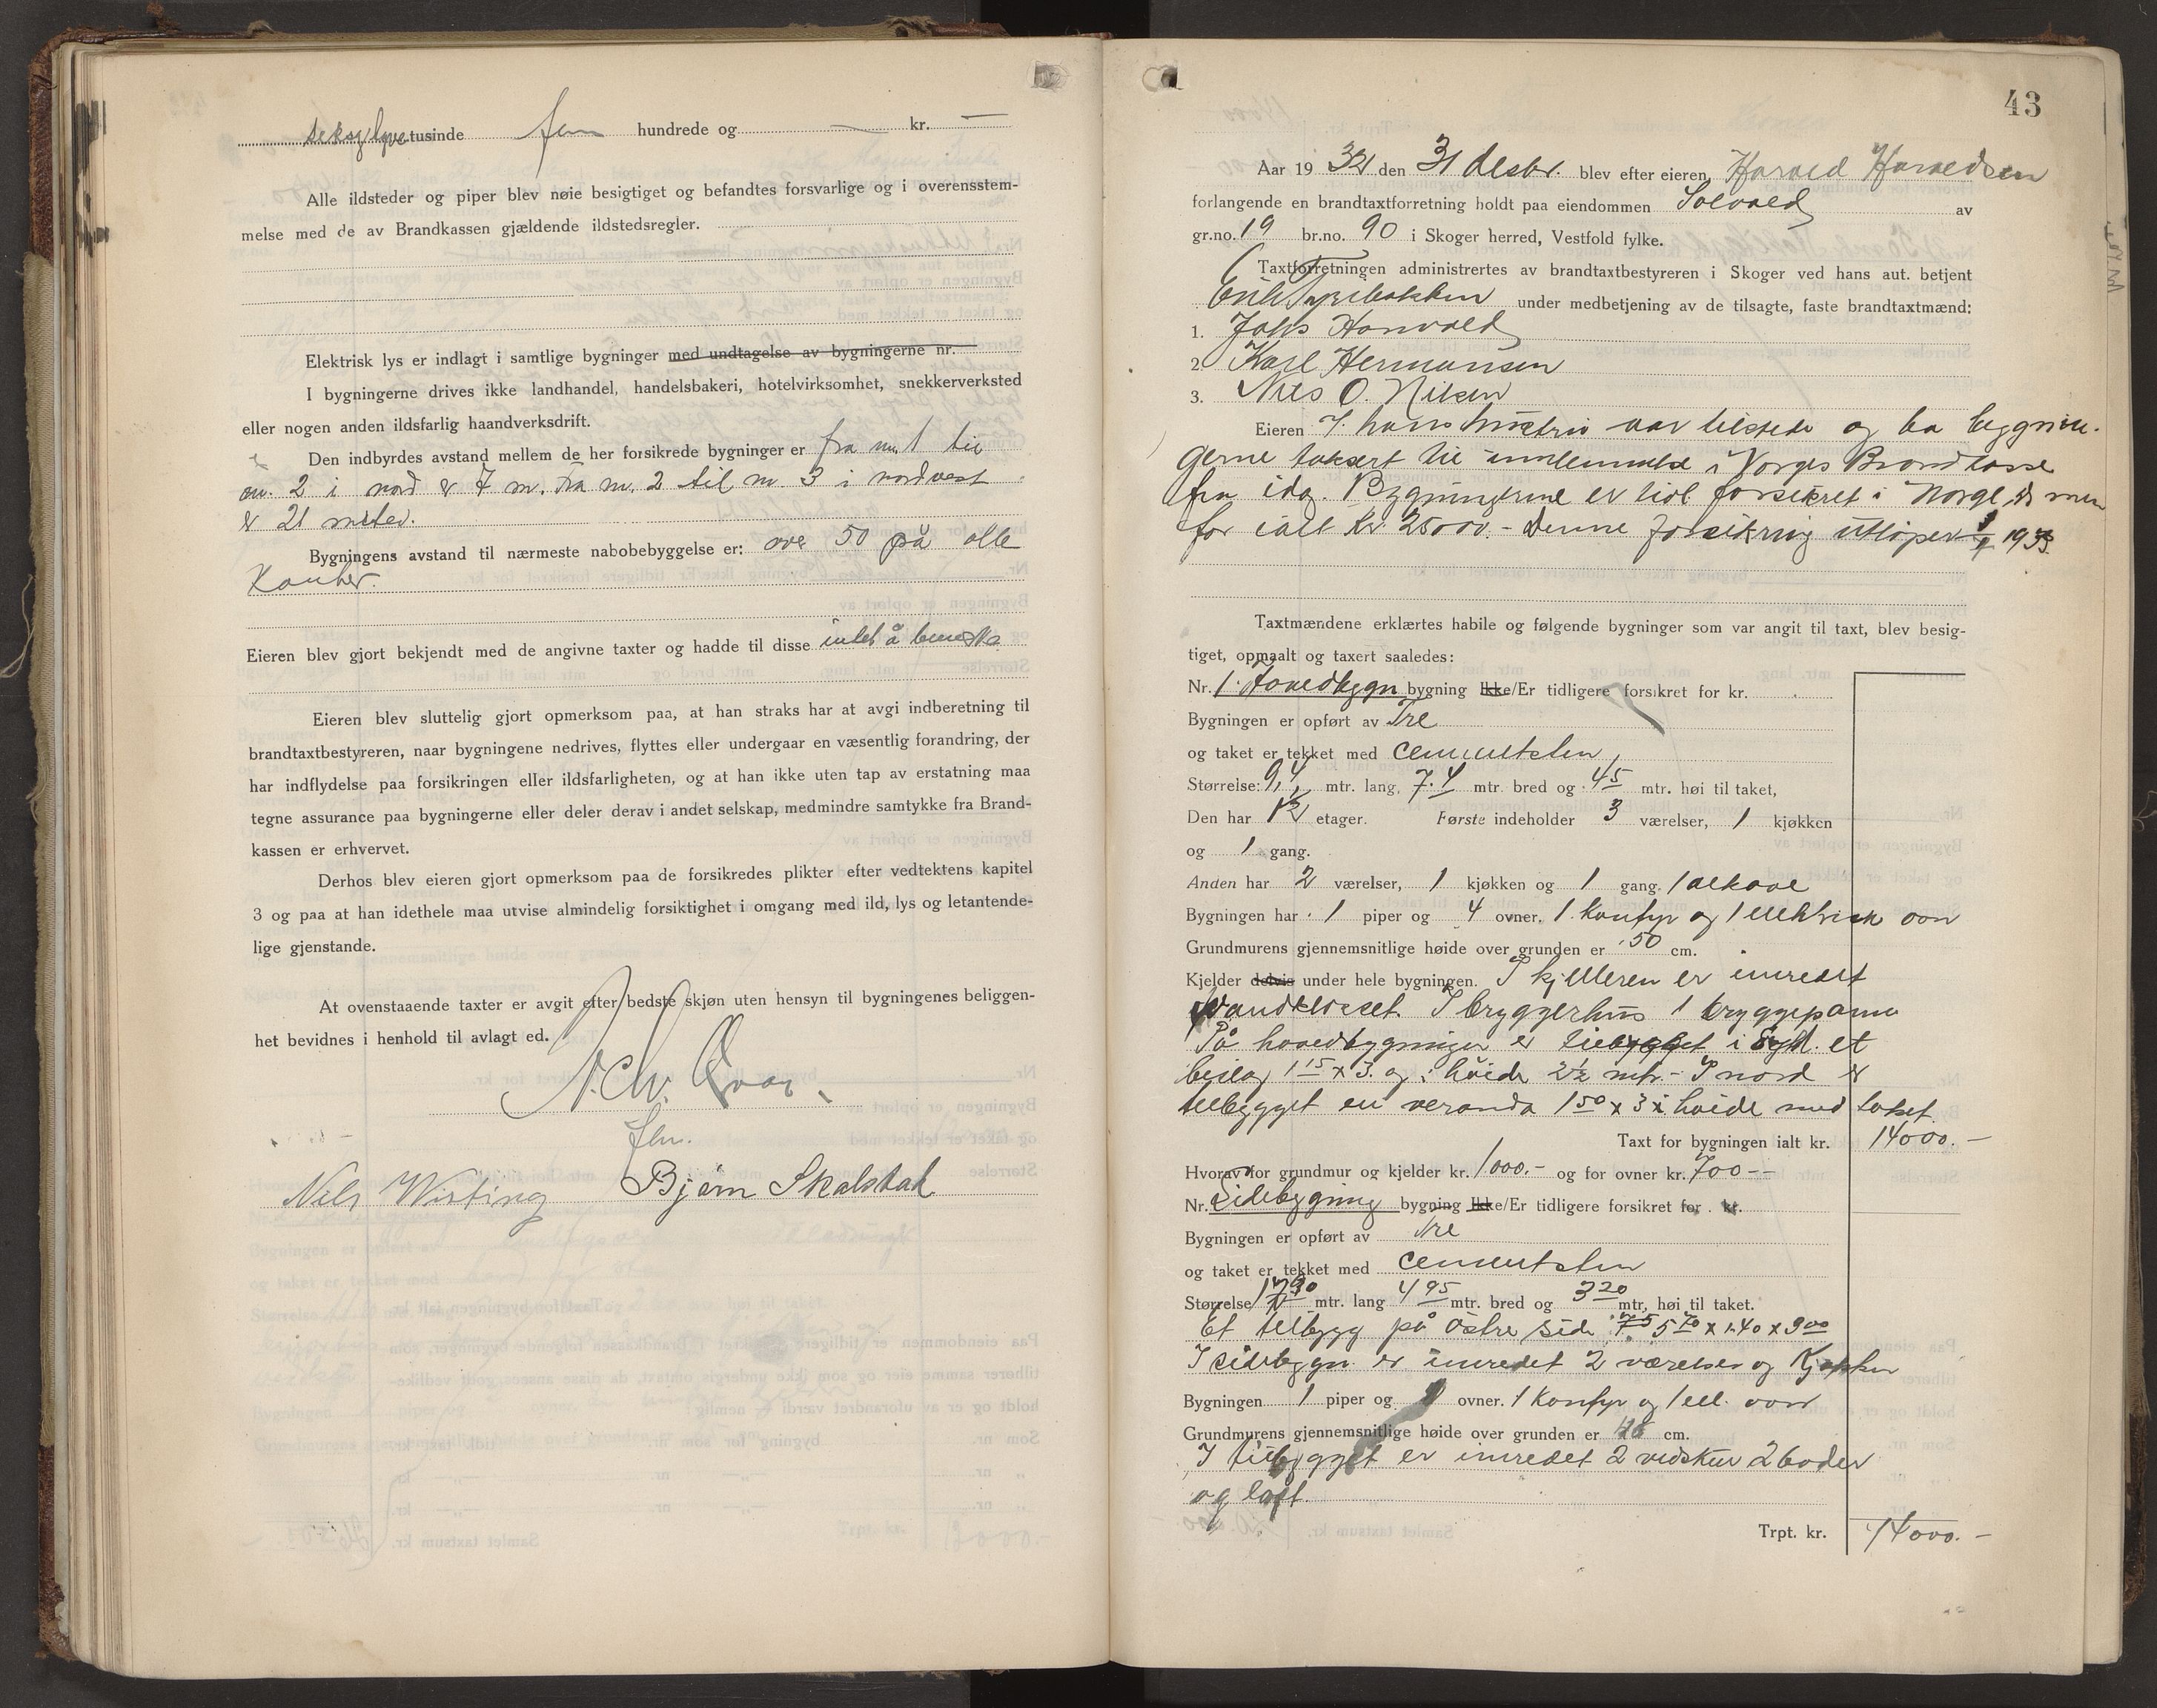 seksogtyve tusinde fem hundrede og — kr. —
Alle ildsteder og piper blev nøie besigtiget og befandtes forsvarlige og i overensstem-
melse med de av Brandkassen gjældende ildstedsregler.
Elektrisk lys er indlagt i samtlige bygninger med undtagelse av bygningerne nr.
I bygningerne drives ikke landhandel, handelsbakeri, hotelvirksomhet, snekkerverksted
eller nogen anden ildsfarlig haandverksdrift.
Den indbyrdes avstand mellem de her forsikrede bygninger er fra nr. 1 til
nr. 2 i nord er 7 m. Fra nr. 2 til nr. 3 i nordvest
er 21 meter.
Bygningens avstand til nærmeste nabobebyggelse er: over 50 på alle
Kanter.
Eieren blev gjort bekjendt med de angivne taxter og hadde til disse intet å bemerke
Eieren blev sluttelig gjort opmerksom paa, at han straks har at avgi indberetning til
brandtaxtbestyreren, naar bygningene nedrives, flyttes eller undergaar en væsentlig forandring, der
har indflydelse paa forsikringen eller ildsfarligheten, og at han ikke uten tap av erstatning maa
tegne assurance paa bygningerne eller deler derav i andet selskap, medmindre samtykke fra Brand-
kassen er erhvervet.
Derhos blev eieren gjort opmerksom paa de forsikredes plikter efter vedtektens kapitel
3 og paa at han idethele maa utvise almindelig forsiktighet i omgang med ild, lys og letantende-
lige gjenstande.
At ovenstaaende taxter er avgit efter bedste skjøn uten hensyn til bygningenes beliggen-
het bevidnes i henhold til avlagt ed.
fhv.
Nils Wisting Bjørn Skalstad
43
Aar 19 32 den 31 desbr. blev efter eieren Harald Haraldsen
forlangende en brandtaxtforretning holdt paa eiendommen Solvold av
gr.no. 19 br.no. 90 i Skoger herred, Vestfold fylke.
Taxtforretningen administrertes av brandtaxtbestyreren i Skoger ved hans aut. betjent
under medbetjening av de tilsagte, faste brandtaxtmænd:
1. Johs Hanvold
2 Karl Hermansen
3. Nils O. Nilsen
Eieren I. hans hustru var tilstede og ba bygnin-
gerne taksert til innlemmelse i Norges Brandkasse
fra idag. Bygningerne er tidl. forsikret i Norge,
for ialt Kr. 25000.- Denne forsikring utløper 1933.
Taxtmændene erklærtes habile og følgende bygninger som var angit til taxt, blev besig-
tiget, opmaalt og taxert saaledes:
Nr. 1. Hovedbygn bygning Ikke/Er tidligere forsikret for kr.
Bygningen er opført av Tre
og taket er tekket med cementsten
Størrelse: 9,4 mtr. lang, 7.4 mtr. bred og 45 mtr. høi til taket,
Den har 1½ etager. Første indeholder 3 værelser, 1 kjøkken
og 1 gang.
Anden har 2 værelser, 1 kjøkken og 1 gang. 1 alkove
Bygningen har 1 piper og 4 ovner. 1 Komfyr og 1 elektrisk ovn
Grundmurens gjennemsnitlige høide over grunden er 50 cm.
Kjelder delvis under hele bygningen. I kjelleren er inredet
vandklosset. I bryggerhus 1 bryggepanne
På hovedbygningen er tilbygget i Syd. et
beslag 1 15 x 3. og i høide 2½ mtr. - I nord er
tilbygget en veranda 1 50 x 3 i høide med taket.
Taxt for bygningen ialt kr. 14000.-
Hvorav for grundmur og kjelder kr. 1000.- og for ovner kr. 700--
Nr. Sidebygning bygning Ikke/Er tidligere forsikret for kr.
Bygningen er opført av Tre
og taket er tekket med cementsten
Størrelse mtr. lang 4 95 mtr. bred og 3 20 mtr. høi til taket.
Et tilbygg på østre side 5 70 x 1.40 x 3 00
I sidebygn er inredet 2 værelser og Kjøkken
Bygningen 1 piper og ovner. 1 Komfyr og 1 ell. ovn
Grundmurens gjennemsnitlige høide over grunden er cm.
I tilbygget er inredet 2 vedskur 2 boder
og loft.
Trpt. kr. 14000.-